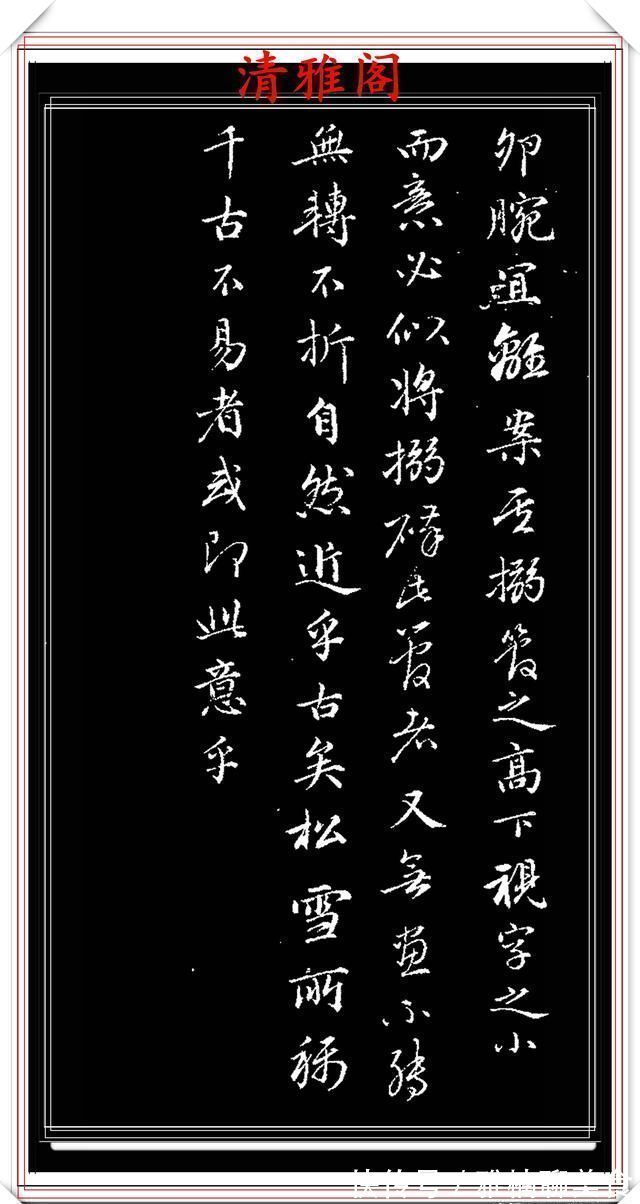 清雅阁
腕宜離案至搦管之高下視字之小
而意必似將搦碎此管者又無畫不轉
無轉不折自然近乎古矣松雪所稱
千古不易者或即此意乎